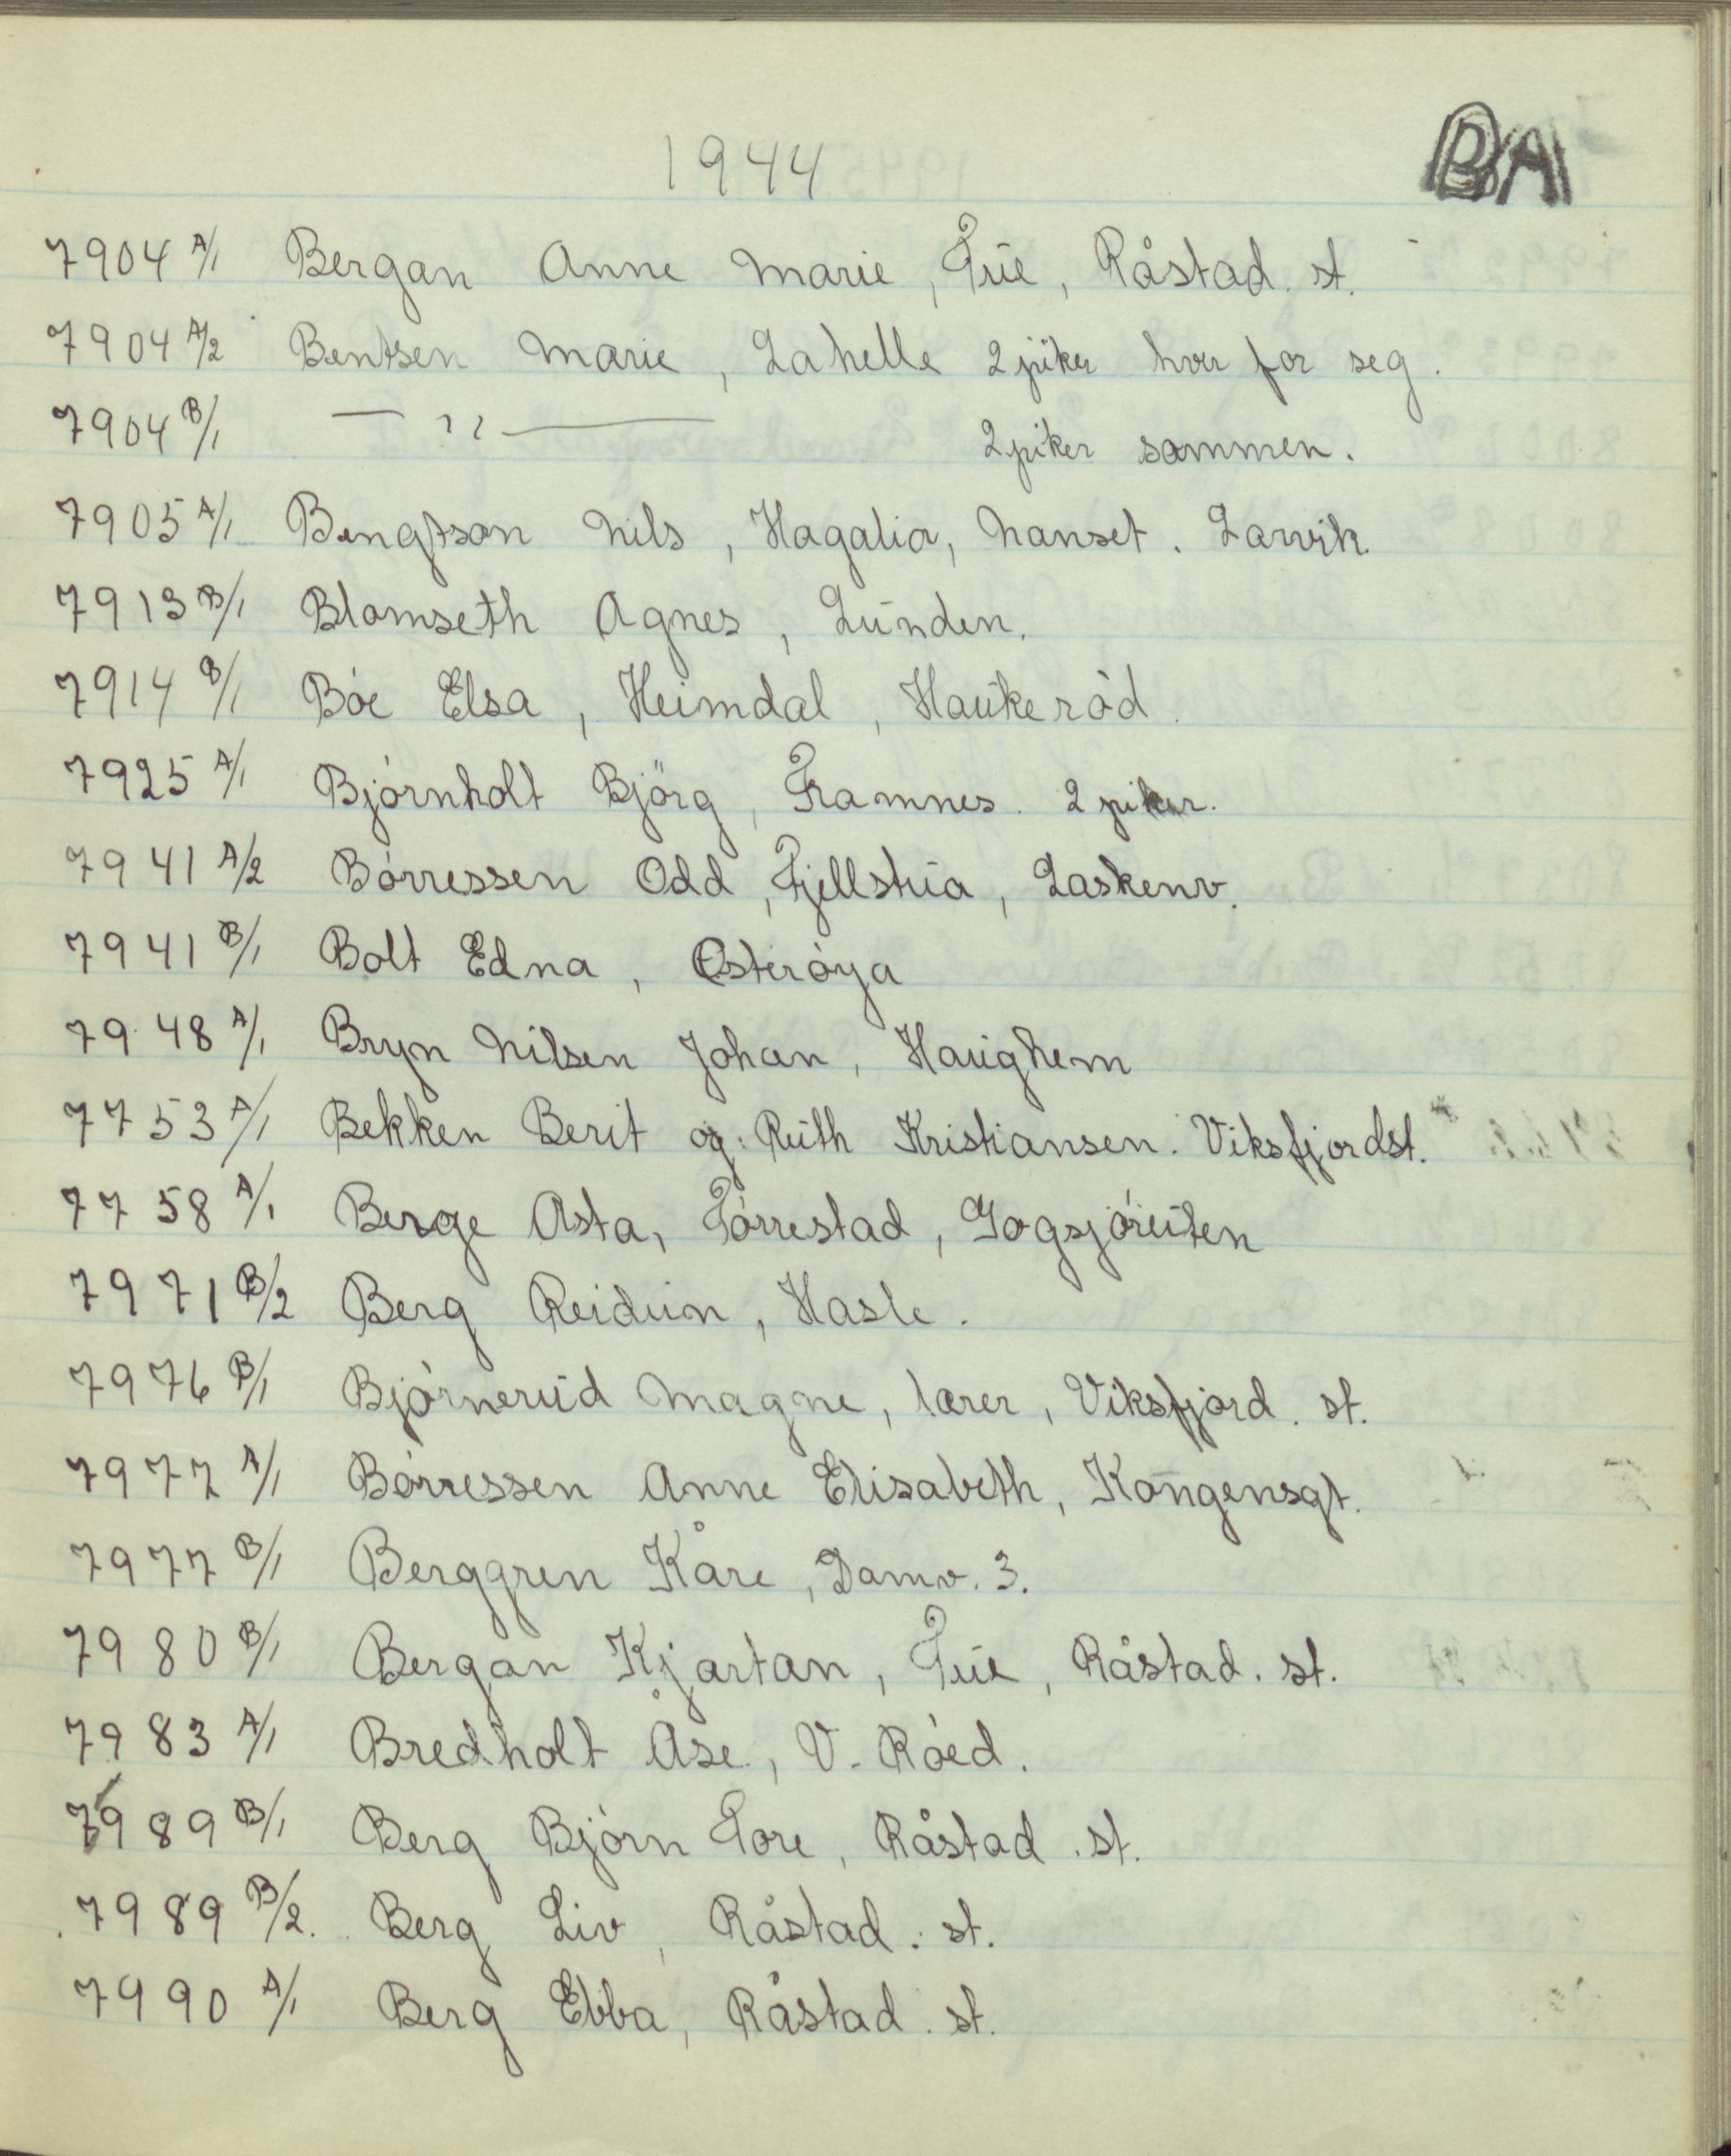 1944
B/A
7904 A/1 Bergan Anne Marie, Tue, Råstad. st.
7904 A/2 Bentsen Marie, Lahelle 2 piker hver for seg.
7904 B/1 — " — 2 piker sammen.
7905 A/1 Bengtson Nils, Hagalia, Nanset. Larvik.
7913 B/1 Blomseth Agnes, Lunden.
7914 B/1 Bóe Elsa, Heimdal, Haukeród.
7925 A/1 Bjórnholt Bjórg, Framnes. 2 piker.
7941 A/2 Bórressen Odd, Fjellstua, Laskenv.
7941 B/1 Bolt Edna, Østeróya
7948 A/1 Bryn Nilsen Johan, Haughem
7753 A/1 Bekken Berit og Ruth Kristiansen. Viksfjordst.
7758 A/1 Berge Asta, Tórrestad, Gogsjóruten
7971 B/2 Berg Reidun, Hasle.
7976 B/1 Bjórnerud Magne, lærer, Viksfjord. st.
7977 A/1 Bórressen Anne Elisabeth, Kongensgt.
7977 B/1 Berggren Kåre, Damv. 3.
7980 B/1 Bergan Kjartan, Tue, Råstad. st.
7983 A/1 Bredholt Åse, V. Róed.
7989 B/1 Berg Bjórn Tore, Råstad. st.
7989 B/2. Berg Liv, Råstad. st.
7990 A/1 Berg Ebba, Råstad. st.